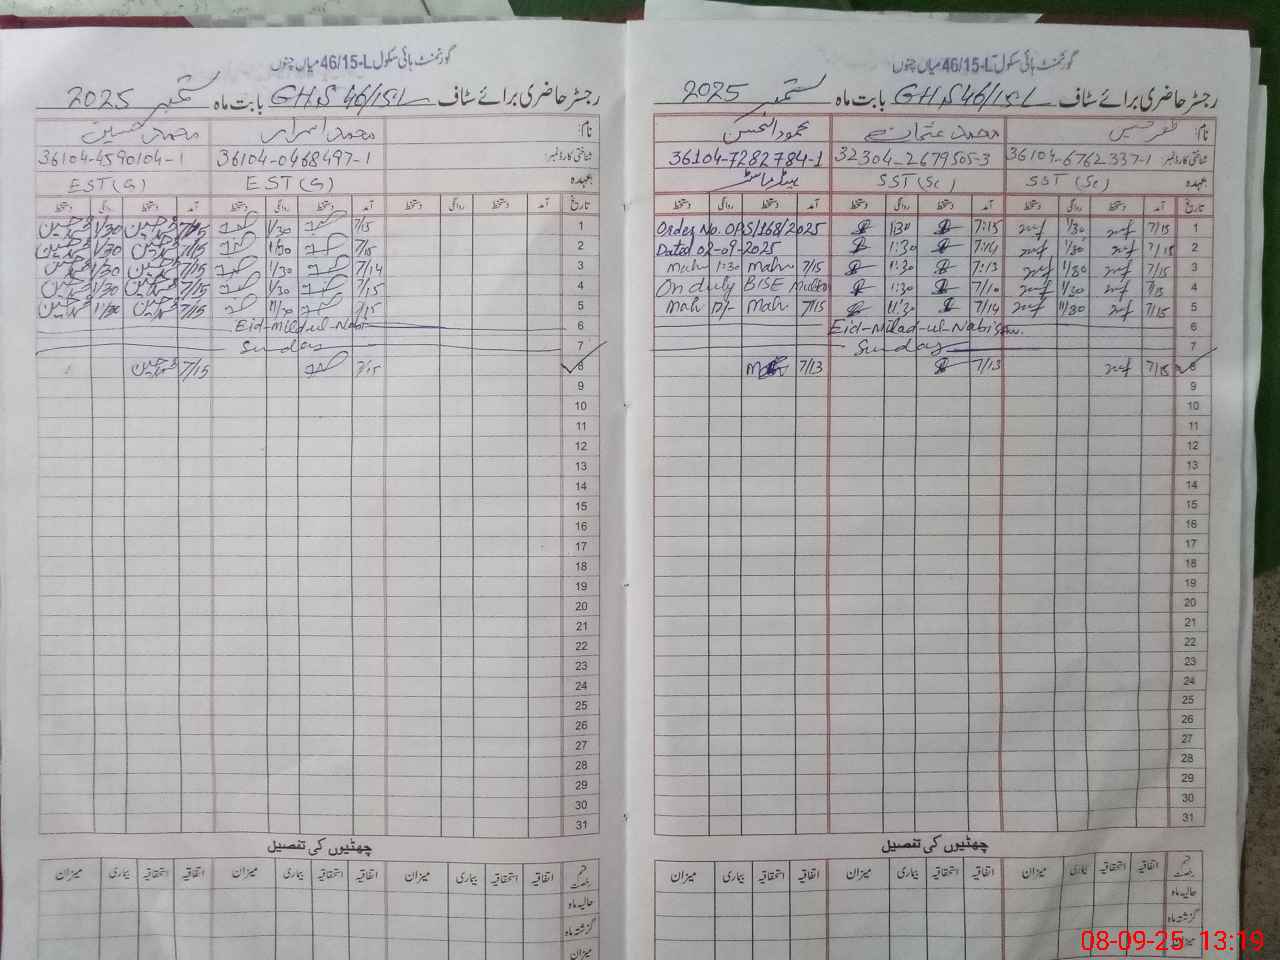 گورنمنٹ ہائی سکول 46/15-L میاں چنوں
رجسٹر حاضری برائے سٹاف GHS 46/15-L بابت ماہ ستمبر 2025
نام: ظفر حسین محمد عثمان محمود الحسن
شناختی کارڈ نمبر: 36104-6762337-1 32304-2679505-3 36104-7282784-1
عہدہ: SST (Sc) SST (Sc) ہیڈ ماسٹر
تاریخ آمد دستخط روانگی دستخط آمد دستخط روانگی دستخط آمد دستخط روانگی دستخط
1 7/15 1/30 7:15 1:30 Order No. OPS/168/2025
2 7/15 1/30 7:14 1:30 Dated 02-09-2025
3 7/15 1/30 7:13 1:30 7/15 1:30
4 7/15 1/30 7/10 1:30 On duly BISE Multan
5 7/15 11/30 7/14 11:30 7/15 12/-
6 Eid-Milad-ul-Nabi
7 Sunday
8 7/15 7/13 7/13
9
10
11
12
13
14
15
16
17
18
19
20
21
22
23
24
25
26
27
28
29
30
31
چھٹیوں کی تفصیل
قسم رخصت اتفاقیہ استحقاقیہ بیماری میزان اتفاقیہ استحقاقیہ بیماری میزان اتفاقیہ استحقاقیہ بیماری میزان
حالیہ ماہ
گزشتہ ماہ
میزان
گورنمنٹ ہائی سکول 46/15-L میاں چنوں
رجسٹر حاضری برائے سٹاف GHS 46/15-L بابت ماہ ستمبر 2025
نام: محمد اسرار محمد حسین
شناختی کارڈ نمبر: 36104-0468497-1 36104-4590104-1
عہدہ: EST (G) EST (G)
تاریخ آمد دستخط روانگی دستخط آمد دستخط روانگی دستخط آمد دستخط روانگی دستخط
1 7/15 1/30 7/15 1/30
2 7/15 1:30 7/15 1/30
3 7/14 1/30 7/15 1/30
4 7/15 1/30 7/15 1/30
5 7/15 11/30 7/15 11/30
6 Eid-Milad-ul-Nabi
7 Sunday
8 7/15 7/15
9
10
11
12
13
14
15
16
17
18
19
20
21
22
23
24
25
26
27
28
29
30
31
چھٹیوں کی تفصیل
قسم رخصت اتفاقیہ استحقاقیہ بیماری میزان اتفاقیہ استحقاقیہ بیماری میزان
حالیہ ماہ
گزشتہ ماہ
میزان
08-09-25 13:19